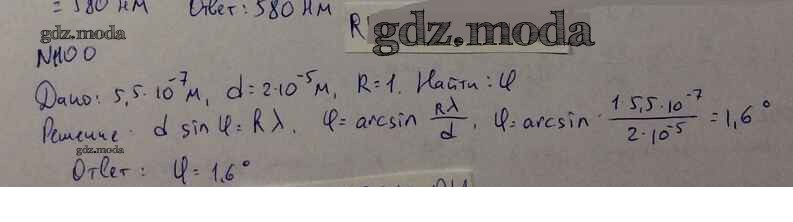 = 580 нм Ответ: 580 нм
gdz.moda
gdz.moda
N1100
Дано: 5,5·10⁻⁷ м, d=2·10⁻⁵ м, R=1. Найти: φ
Решение. d sin φ = Rλ. φ = arcsin Rλ/d. φ = arcsin · 1·5,5·10⁻⁷/2·10⁻⁵ = 1,6°
gdz.moda
Ответ: φ = 1,6°